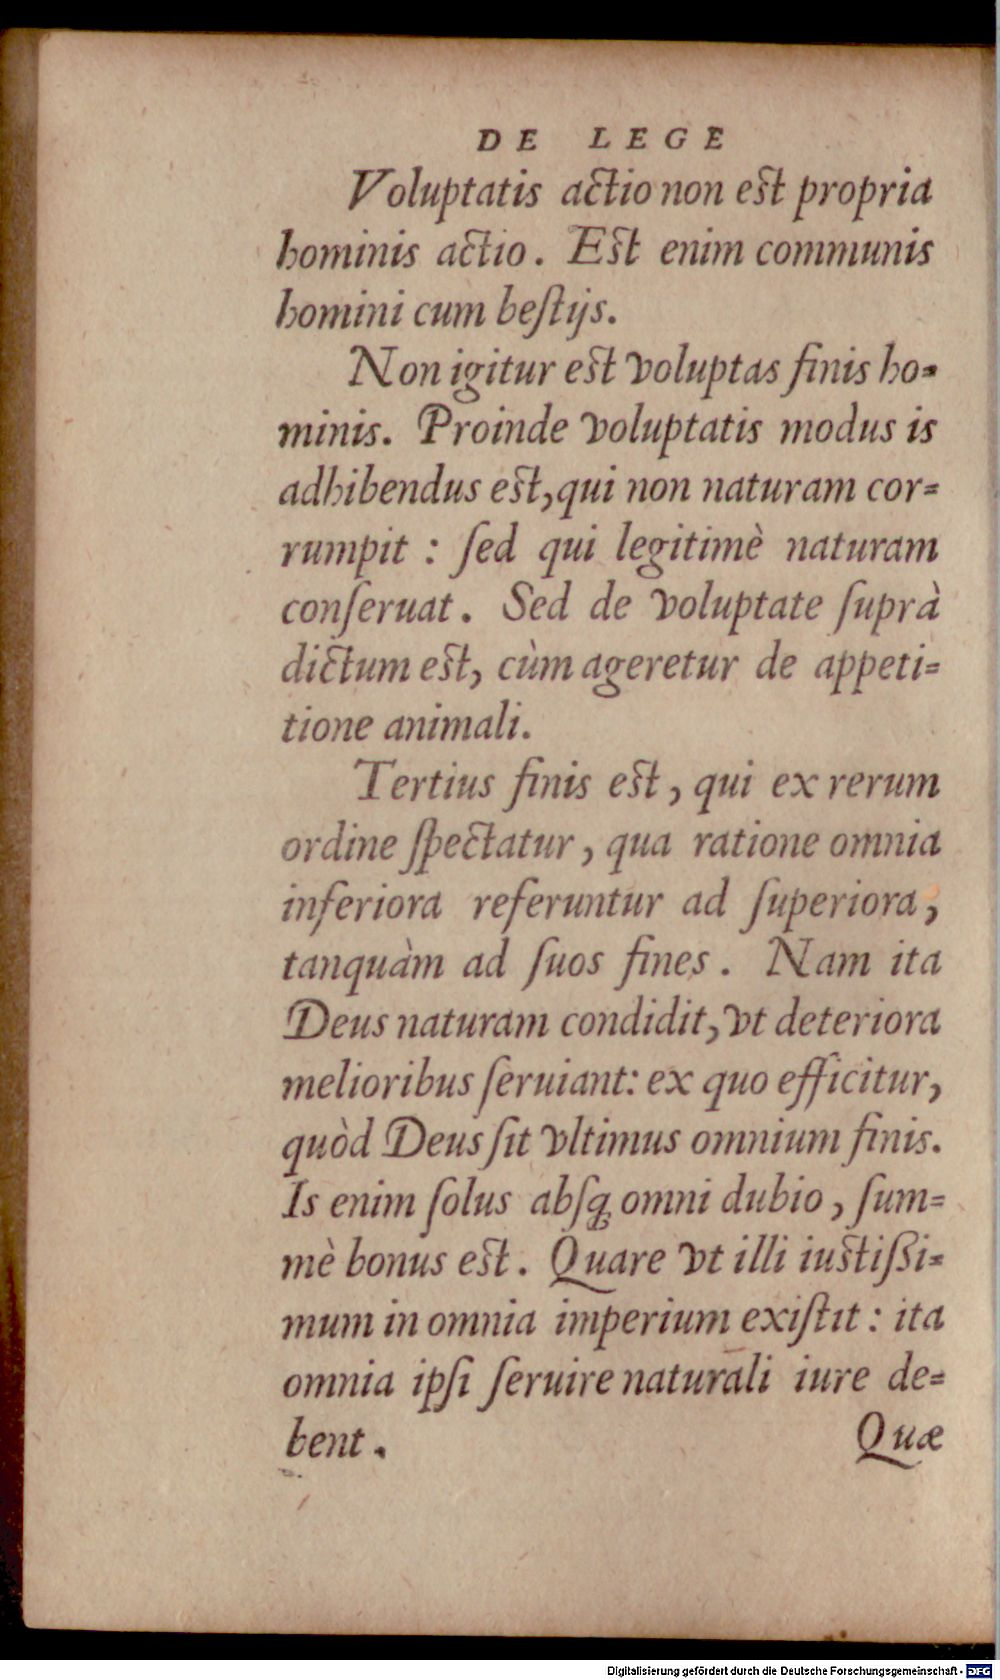 DE LEGE
Voluptatis actio non est propria
hominis actio. Est enim communis
homini cum beſtijs.
Non igitur est voluptas finis ho=
minis. Proinde voluptatis modus is
adhibendus est, qui non naturam cor=
rumpit : ſed qui legitimè naturam
conſeruat. Sed de voluptate ſuprà
dictum est, cùm ageretur de appeti=
tione animali.
Tertius finis est, qui ex rerum
ordine ſpectatur, qua ratione omnia
inferiora referuntur ad ſuperiora,
tanquàm ad ſuos fines. Nam ita
Deus naturam condidit, vt deteriora
melioribus ſeruiant: ex quo efficitur,
quòd Deus ſit vltimus omnium finis.
Is enim ſolus abſq; omni dubio, ſum=
mè bonus est. Quare vt illi iustißi=
mum in omnia imperium exiſtit : ita
omnia ipſi ſeruire naturali iure de=
bent. Quæ
Digitalisierung gefördert durch die Deutsche Forschungsgemeinschaft - DFG